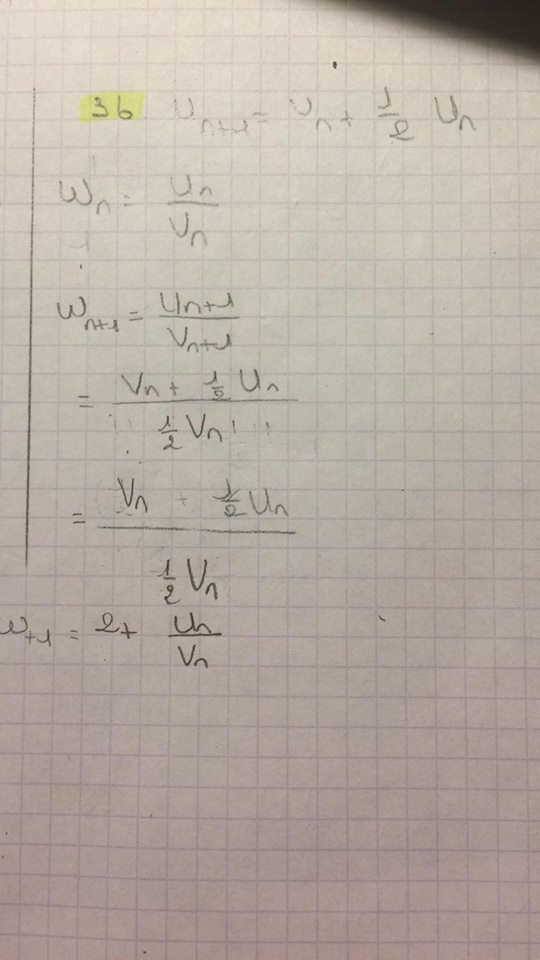 3b U_{n+1} = V_n + \frac{1}{2} U_n
W_n = \frac{U_n}{V_n}
W_{n+1} = \frac{U_{n+1}}{V_{n+1}}
= \frac{V_n + \frac{1}{2} U_n}{\frac{1}{2} V_n}
= \frac{V_n + \frac{1}{2} U_n}{\frac{1}{2} V_n}
W_{+1} = 2 + \frac{U_n}{V_n}